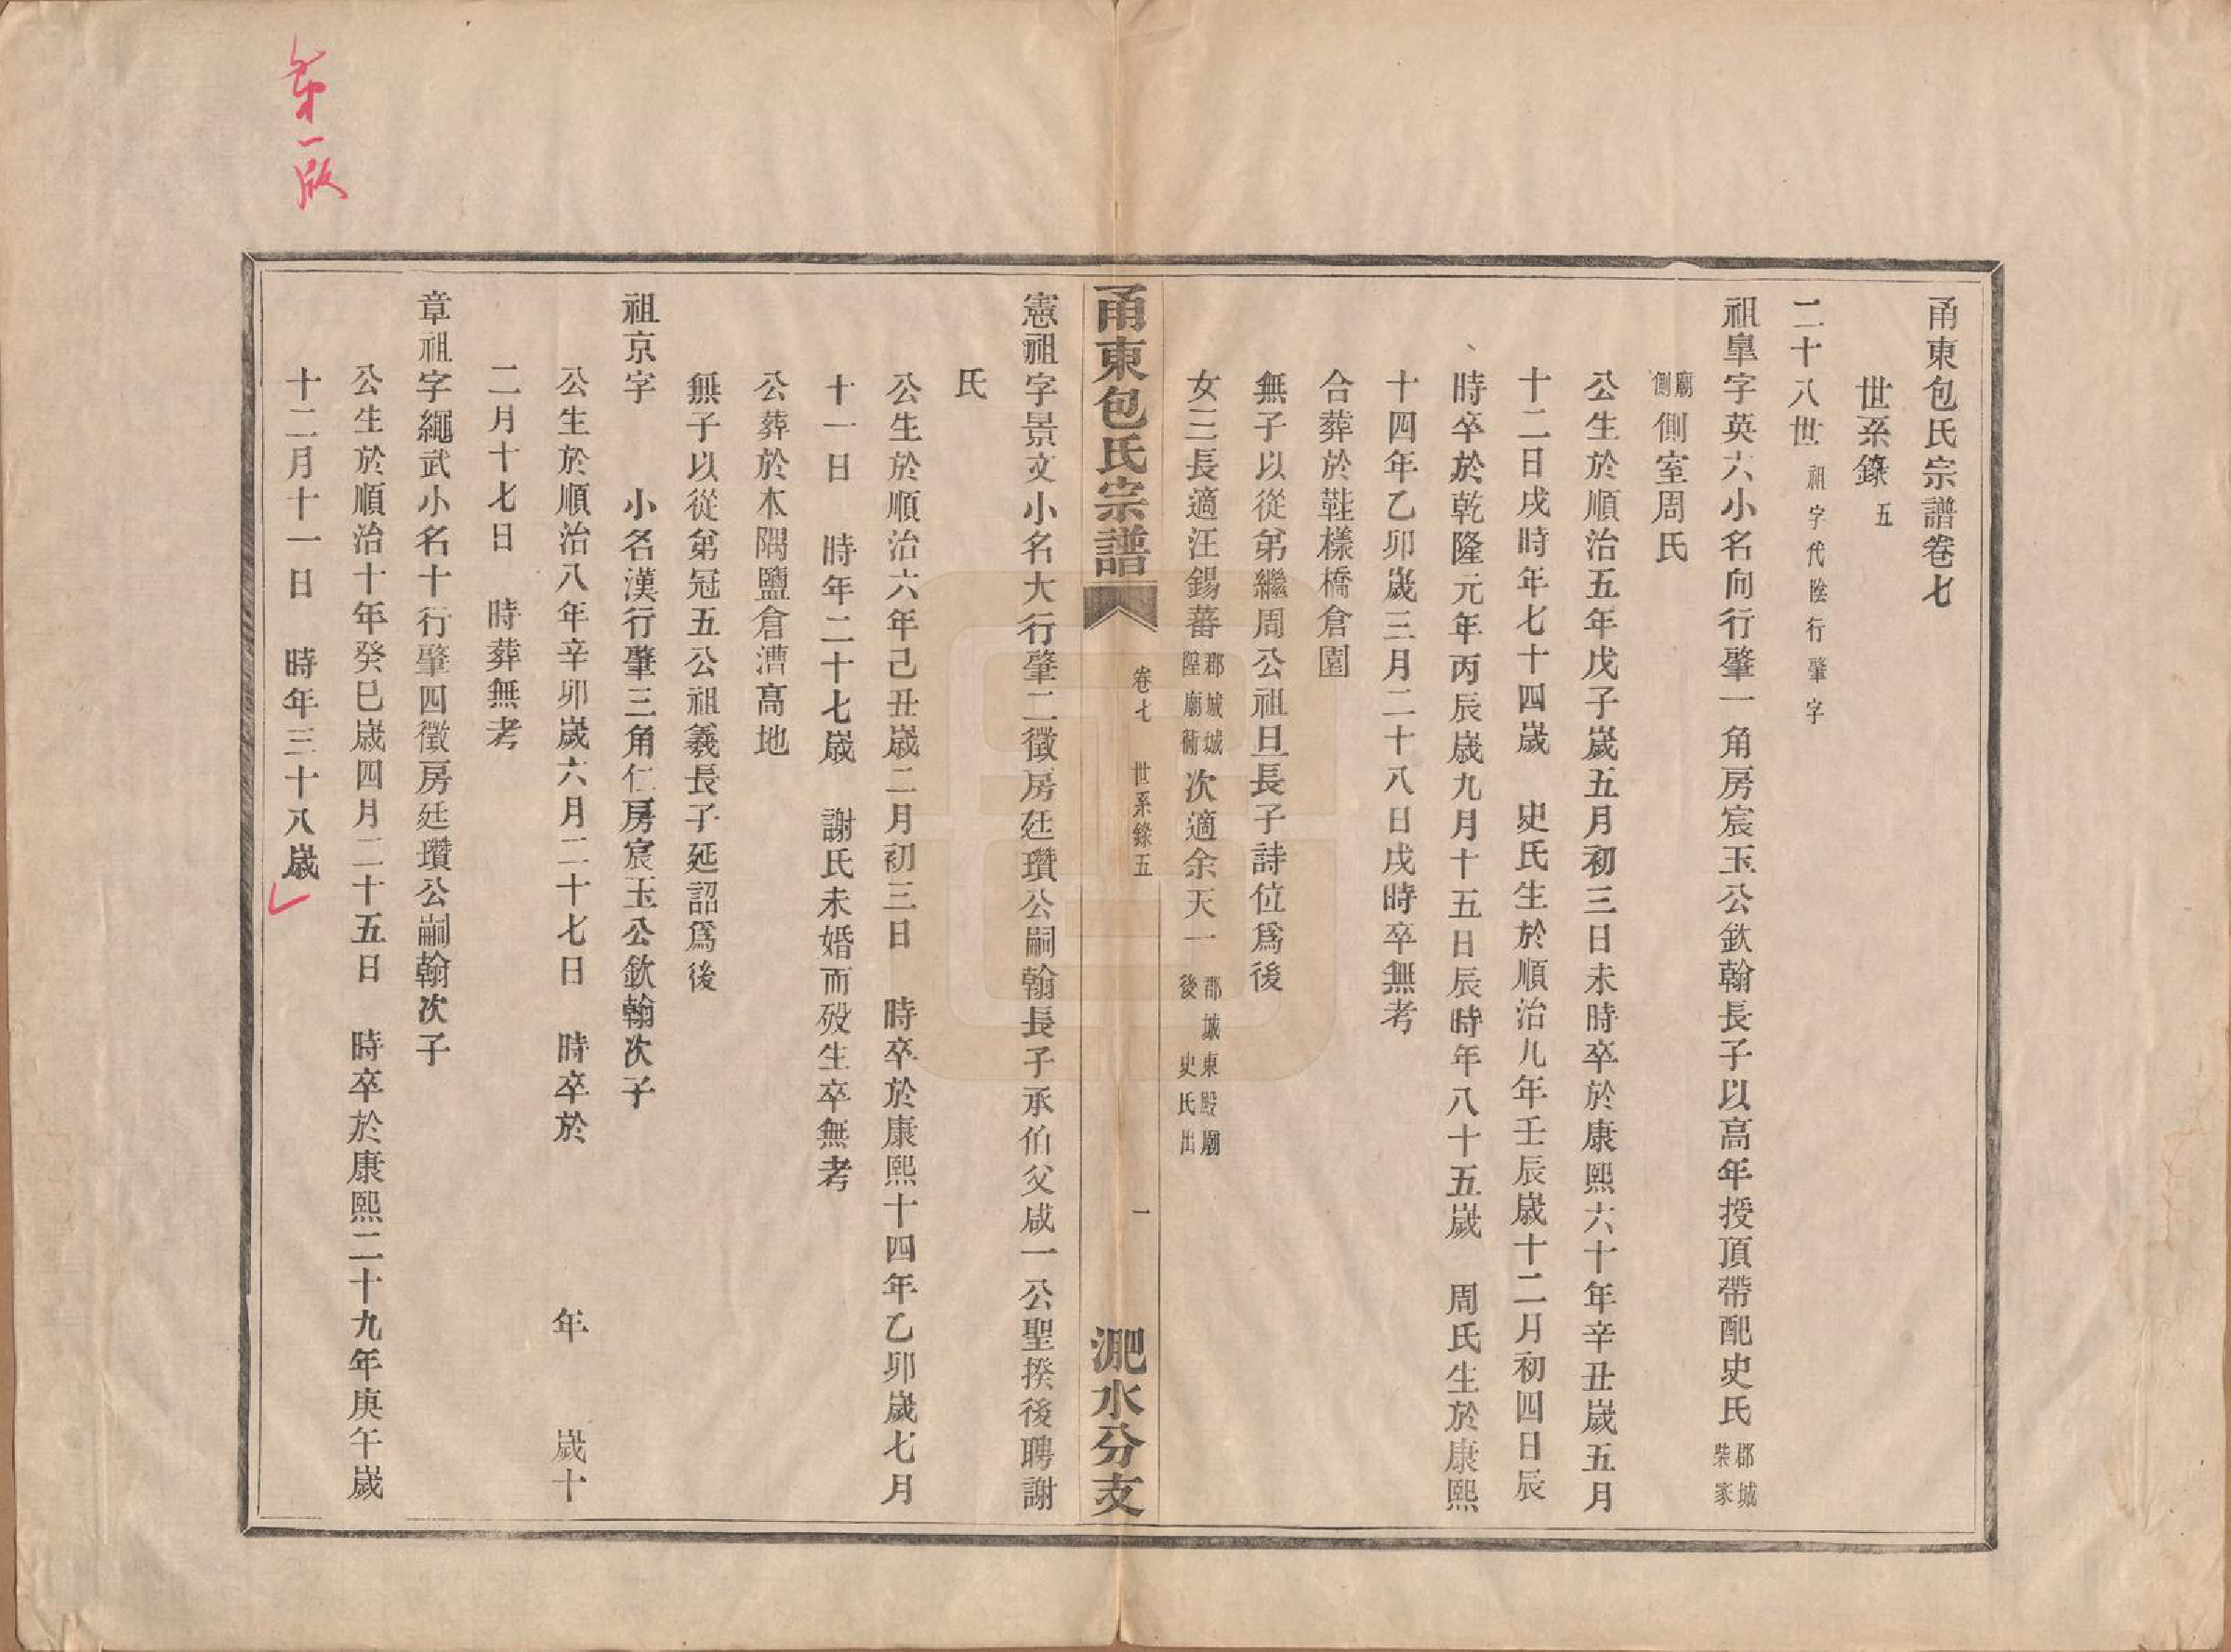 甬東包氏宗譜卷七
世系錄五
二十八世祖字代陞行肇字
祖臯字英六小名向行肇一角房宸玉公欽翰長子以高年授頂帶配史氏郡城柴家
廟側側室周氏
公生於順治五年戊子歲五月初三日未時卒於康熙六十年辛丑歲五月
十二日戌時年七十四歲　史氏生於順治九年壬辰歲十二月初四日辰
時卒於乾隆元年丙辰歲九月十五日辰時年八十五歲　周氏生於康熙
十四年乙卯歲三月二十八日戌時卒無考
合葬於鞋樣橋倉園
無子以從弟繼周公祖旦長子詩位爲後
女三長適汪錫蕃郡城城隍廟衕次適余天一郡城東殿廟後史氏出
甬東包氏宗譜
卷七　世系錄五
一
淝水分支
憲祖字景文小名大行肇二徵房廷瓚公嗣翰長子承伯父咸一公聖揆後聘謝
氏
公生於順治六年己丑歲二月初三日　時卒於康熙十四年乙卯歲七月
十一日　時年二十七歲　謝氏未婚而歿生卒無考
公葬於木隅鹽倉漕高地
無子以從弟冠五公祖義長子延詔爲後
祖京字　　小名漢行肇三角仁房宸玉公欽翰次子
公生於順治八年辛卯歲六月二十七日　時卒於　　年　　歲十
二月十七日　時葬無考
章祖字繩武小名十行肇四徵房廷瓚公嗣翰次子
公生於順治十年癸巳歲四月二十五日　時卒於康熙二十九年庚午歲
十二月十一日　時年三十八歲
第一版